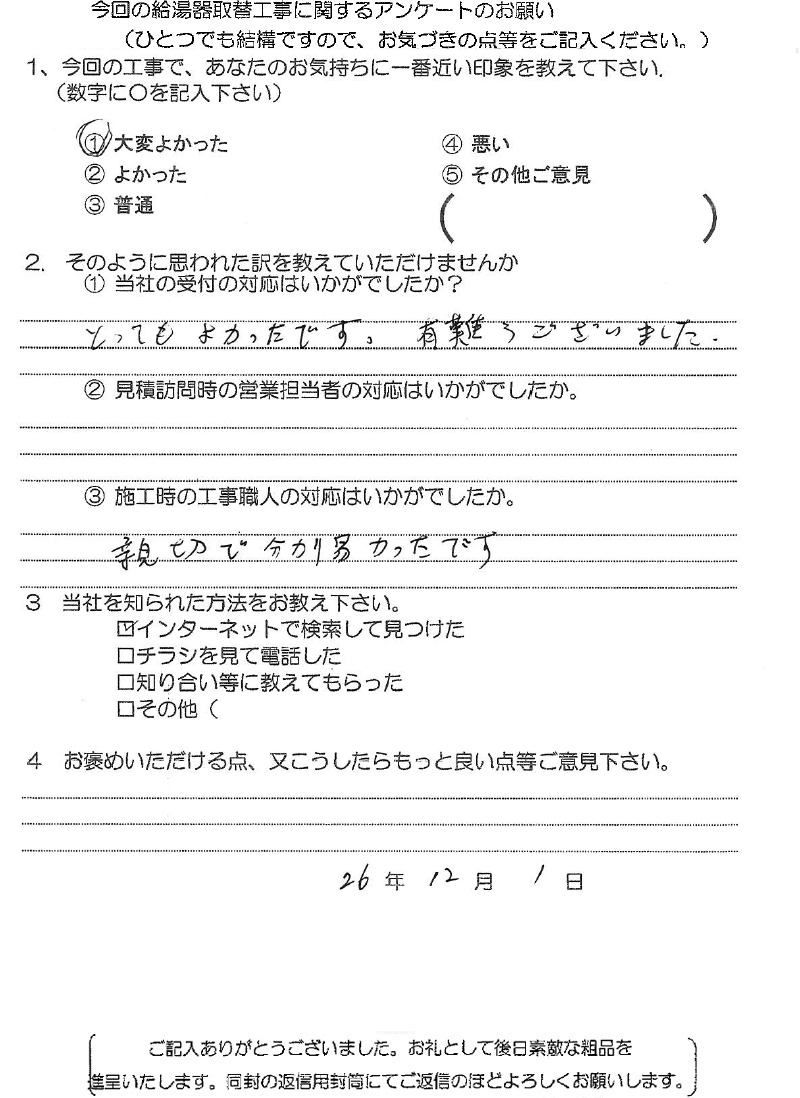 今回の給湯器取替工事に関するアンケートのお願い
（ひとつでも結構ですので、お気づきの点等をご記入ください。）
1、今回の工事で、あなたのお気持ちに一番近い印象を教えて下さい.
（数字に〇を記入下さい）
① 大変よかった
④ 悪い
② よかった
⑤ その他ご意見
③ 普通
（　）
2．そのように思われた訳を教えていただけませんか
① 当社の受付の対応はいかがでしたか？
とってもよかったです。有難うございました.
② 見積訪問時の営業担当者の対応はいかがでしたか。
③ 施工時の工事職人の対応はいかがでしたか。
親切で分かり易かったです
3 当社を知られた方法をお教え下さい。
☑インターネットで検索して見つけた
□チラシを見て電話した
□知り合い等に教えてもらった
□その他（
4 お褒めいただける点、又こうしたらもっと良い点等ご意見下さい。
26 年 12 月 1 日
ご記入ありがとうございました。お礼として後日素敵な粗品を
進呈いたします。同封の返信用封筒にてご返信のほどよろしくお願いします。